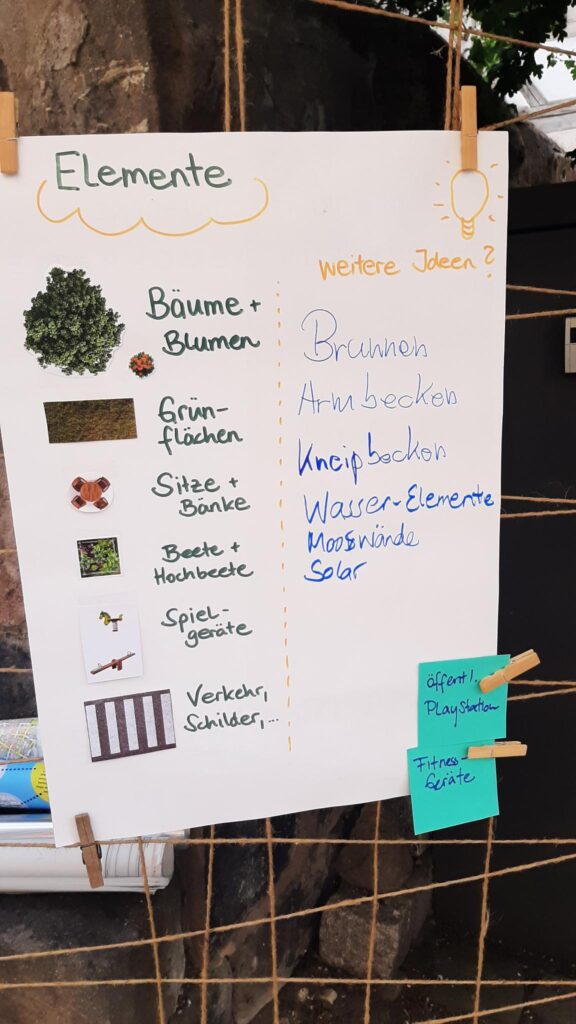 Elemente
Bäume +
Blumen
Grün-
flächen
Sitze +
Bänke
Beete +
Hochbeete
Spiel-
geräte
Verkehr,
Schilder,...
weitere Ideen?
Brunnen
Armbecken
Kneipbecken
Wasser-Elemente
Mooswände
Solar
öffentl.
PlayStation
Fitness-
Geräte